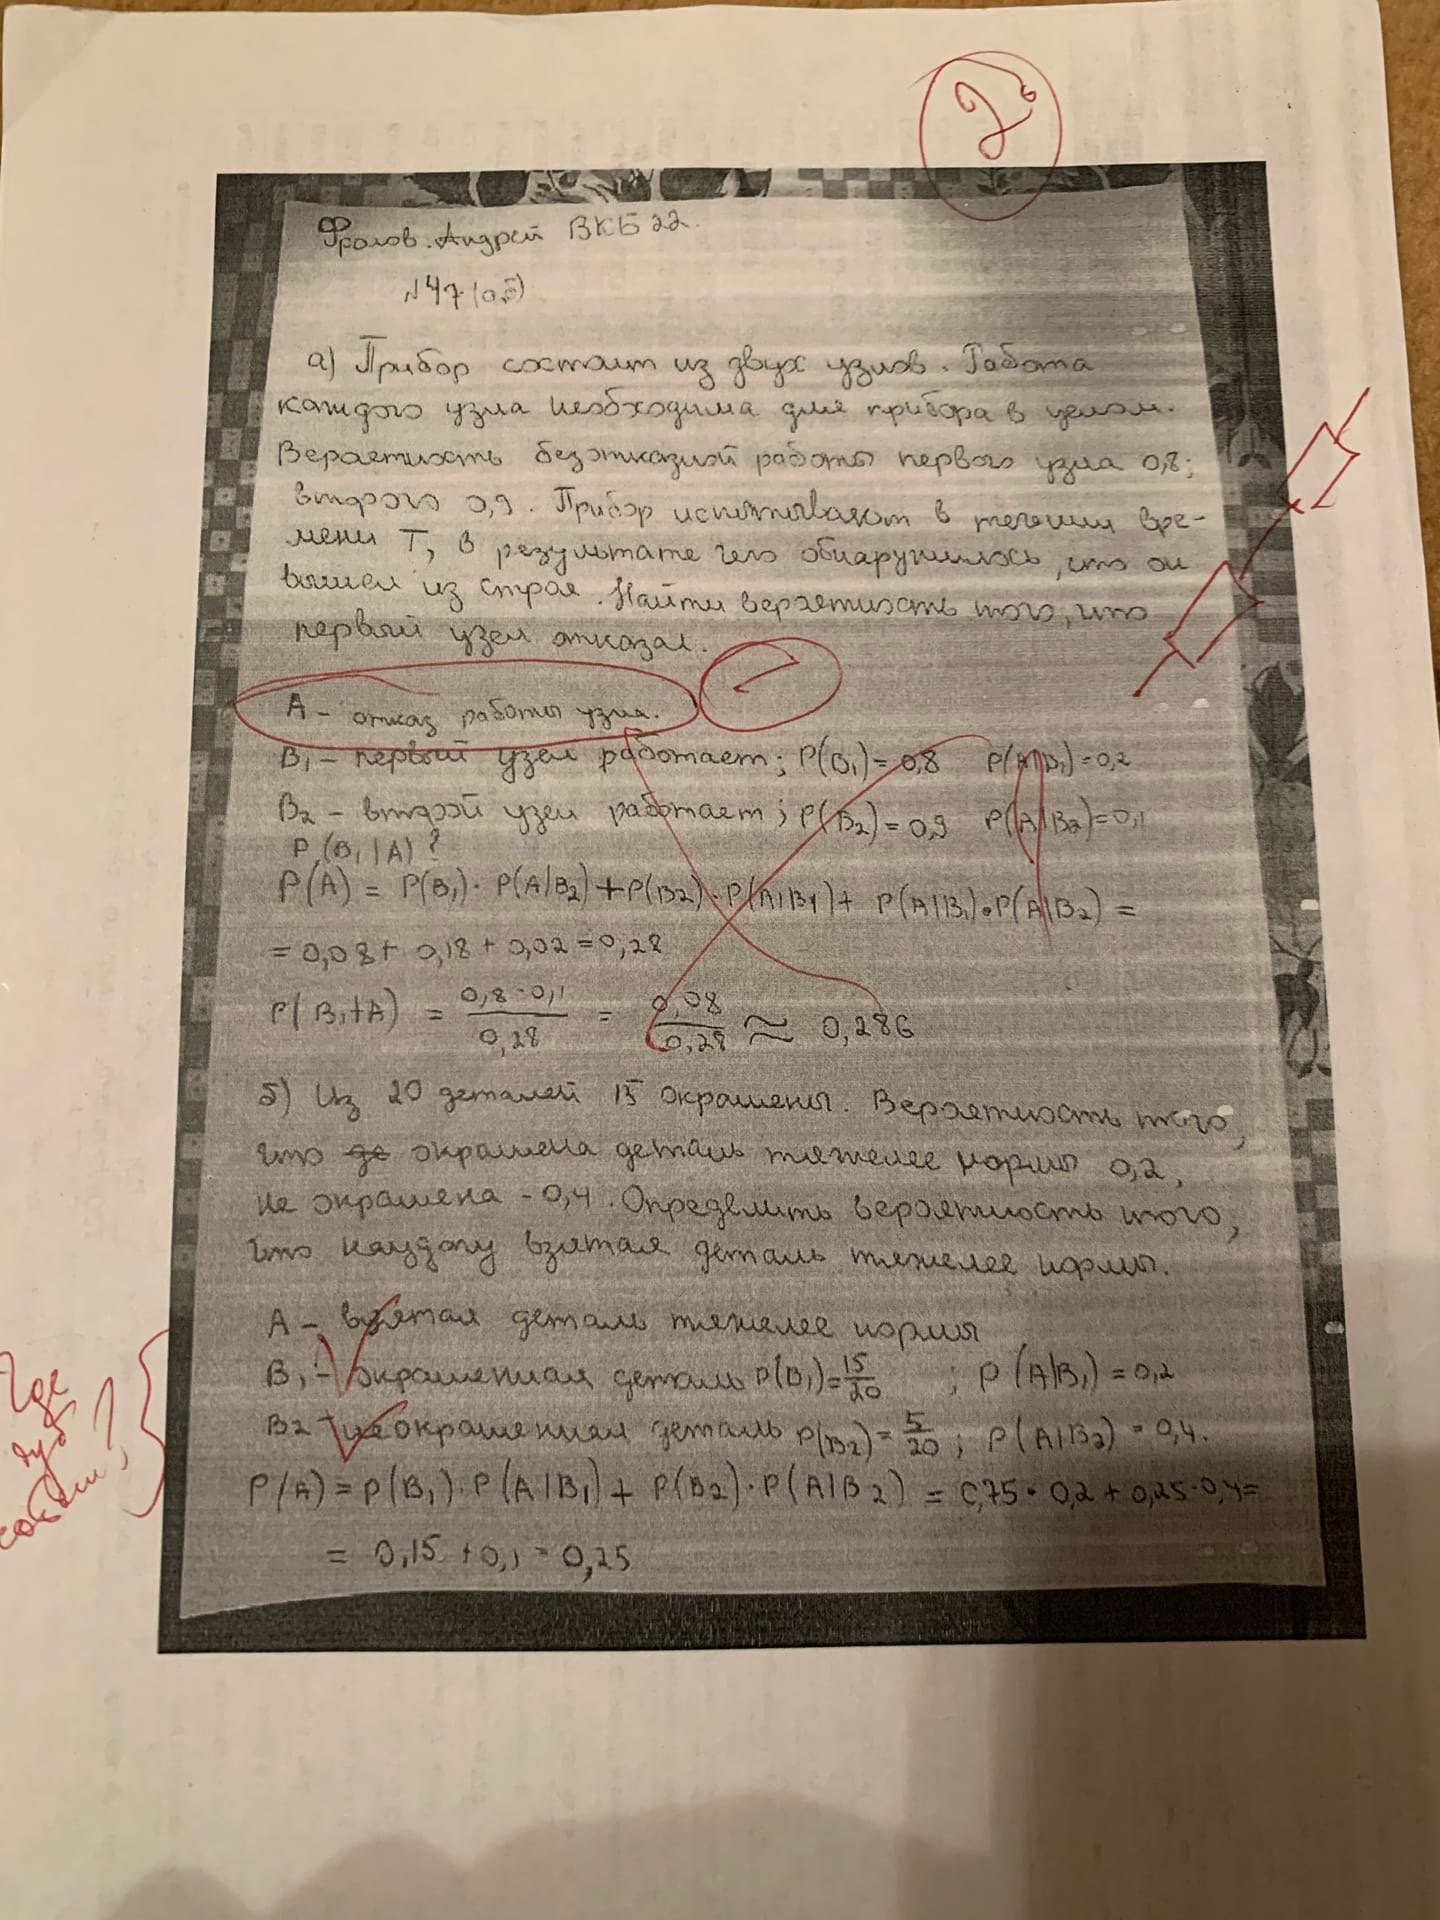 2б
Фролов Андрей ВКБ 22.
№47 (а,б)
а) Прибор состоит из двух узлов. Работа
каждого узла необходима для прибора в целом.
Вероятность безотказной работы первого узла 0,8;
второго 0,9. Прибор испытывают в течении вре-
мени T, в результате чего обнаружилось, что он
вышел из строя. Найти вероятность того, что
первый узел отказал.
A - отказ работы узла.
B1 - первый узел работает; P(B1) = 0,8 P(A|B1) = 0,2
B2 - второй узел работает; P(B2) = 0,9 P(A|B2) = 0,1
P(B1|A)?
P(A) = P(B1)·P(A|B2)+P(B2)·P(A|B1)+ P(A|B1)·P(A|B2) =
= 0,08 + 0,18 + 0,02 = 0,28
P(B1|A) = 0,8·0,1/0,28 = 0,08/0,28 ≈ 0,286
б) Из 20 деталей 15 окрашены. Вероятность того,
что окрашена деталь тяжелее нормы 0,2,
не окрашена - 0,4. Определить вероятность того,
что наудачу взятая деталь тяжелее нормы.
A - взятая деталь тяжелее нормы
B1 - окрашенная деталь P(B1)=15/20 ; P(A|B1) = 0,2
B2 - неокрашенная деталь P(B2) = 5/20 ; P(A|B2) = 0,4.
Где
событий?
P(A) = P(B1)·P(A|B1) + P(B2)·P(A|B2) = 0,75·0,2 + 0,25·0,4=
= 0,15 + 0,1 = 0,25